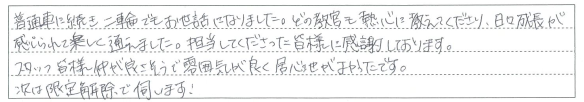 普通車に続き二輪でもお世話になりました。どの教官も熱心に教えてくださり、日々成長が
感じられて楽しく通えました。担当してくださった皆様に感謝しております。
スタッフ皆様仲が良さそうで雰囲気が良く居心地がよかったです。
次は限定解除で伺います!